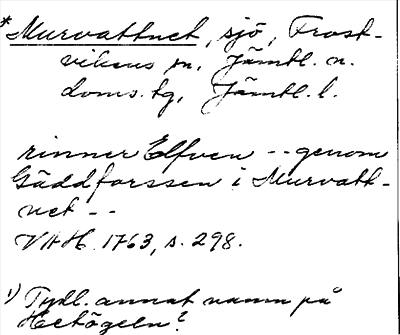 *Murvattnet, sjö, Frost-
vikens sn, Jämtl. n.
doms. tg, Jämtl. l.
rinner Elfven -- genom
Gäddforssen i Murvatt-
net --
VAH 1763, s. 298.
1) Tydl. annat namn på
Hetögeln?